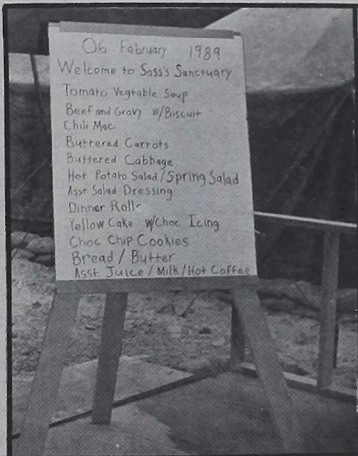 06 February 1989
Welcome to Sass's Sanctuary
Tomato Vegtable Soup
Beef and Gravy w/Biscuit
Chili Mac
Buttered Carrots
Buttered Cabbage
Hot Potato Salad/Spring Salad
Asst Salad Dressing
Dinner Rolls
Yellow Cake w/Choc Icing
Choc Chip Cookies
Bread / Butter
Asst Juice / Milk / Hot Coffee